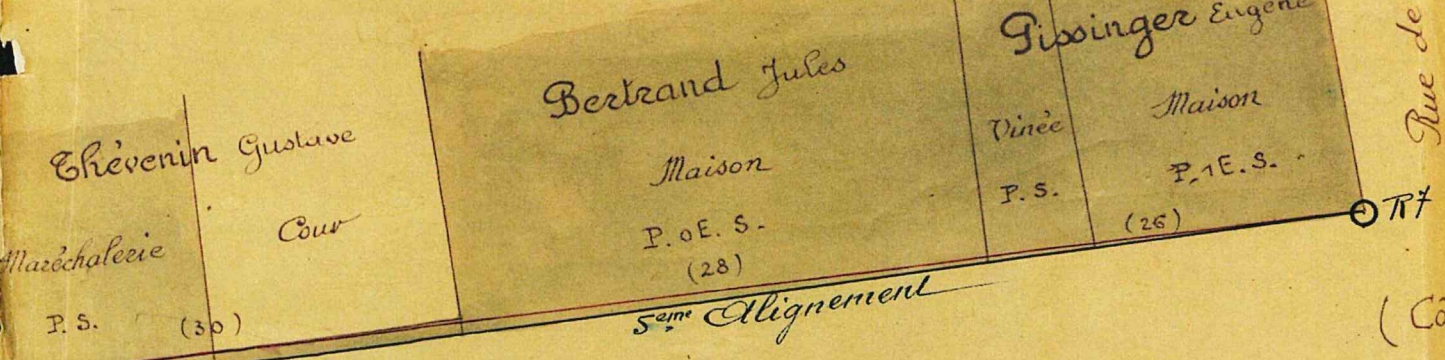 Thévenin Gustave
Maréchalerie
P. S.
(30)
Cour
Bertrand Jules
Maison
P. 0E. S.
(28)
Gissinger Eugène
Vinée
P. S.
Maison
P. 1E. S.
(26)
5eme Alignement
R7
Rue de
(Co